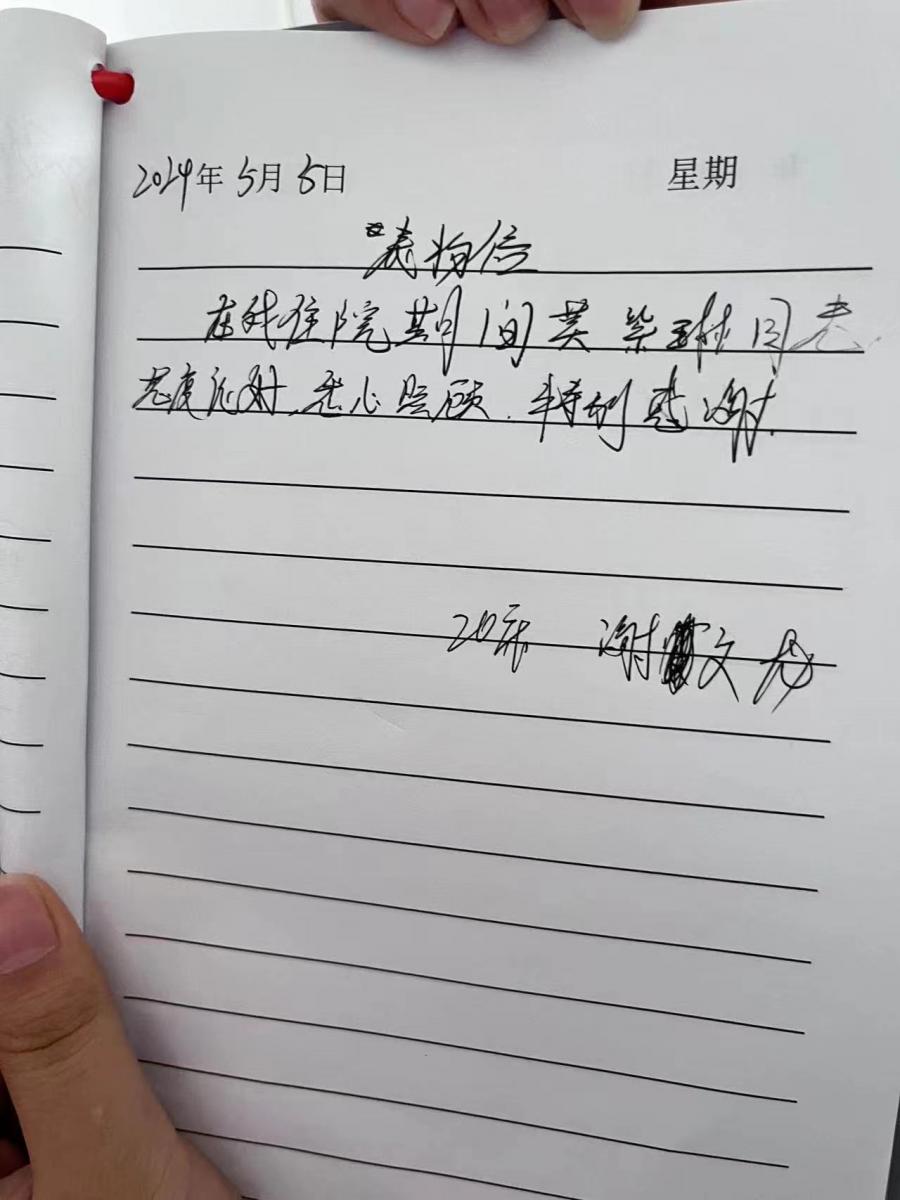 2024年 5月 5日 星期
表扬信
在我住院期间黄紫琳同志
态度很好.悉心照顾.特别感谢.
20床 谢文龙